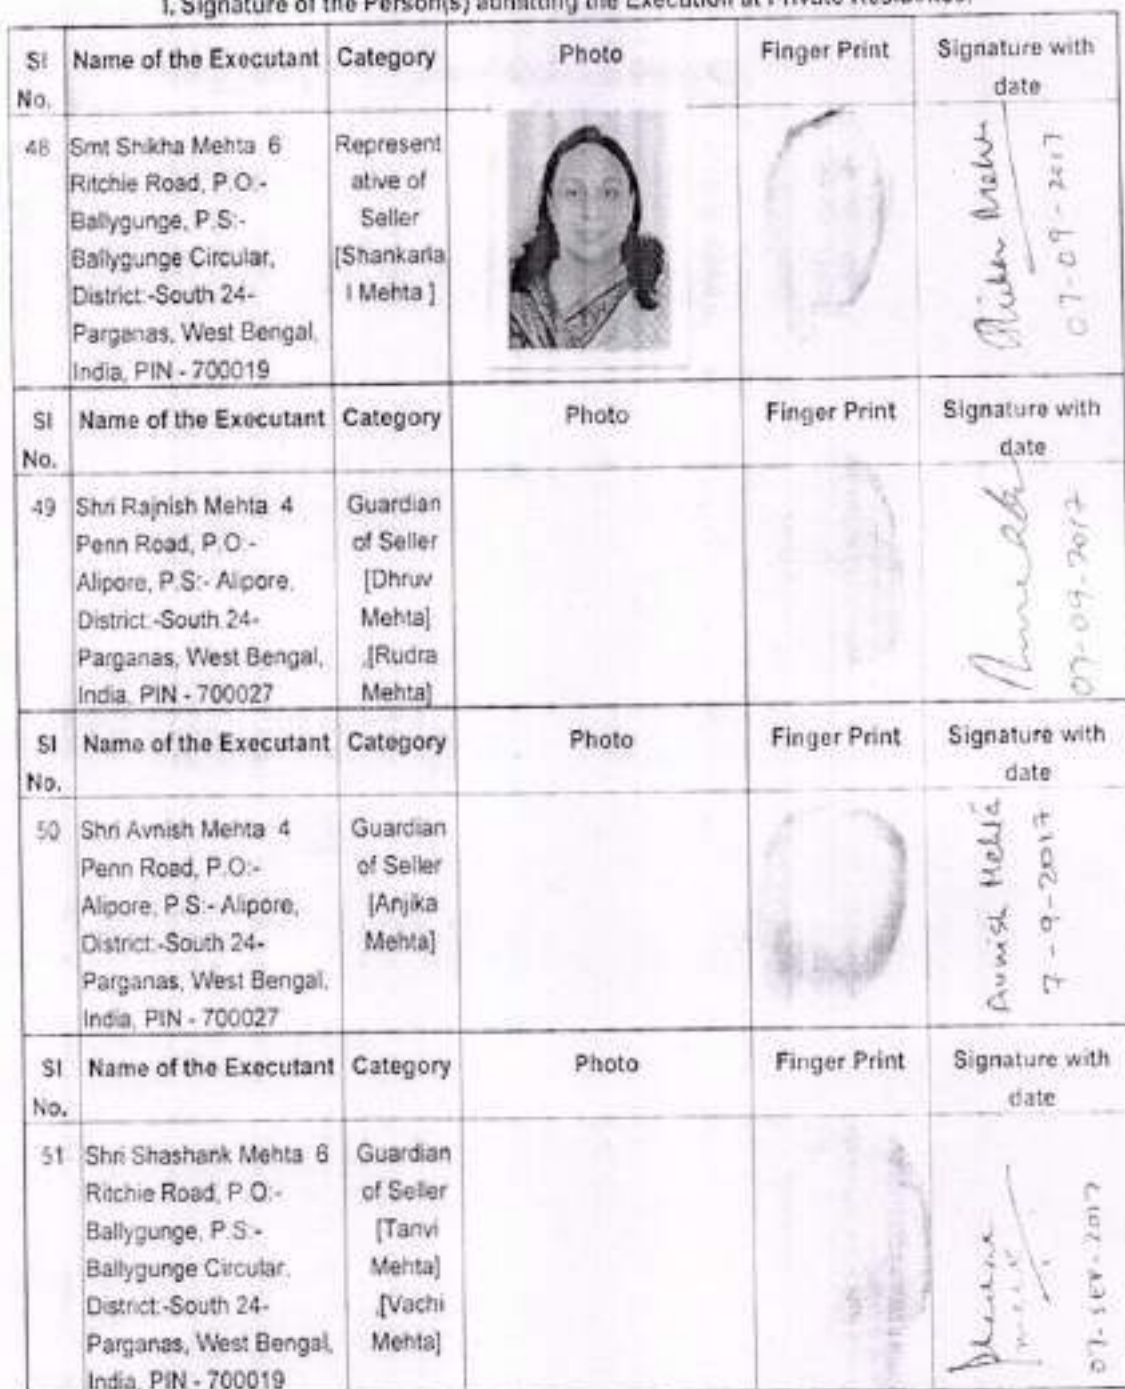 I. Signature of the Person(s) admitting the Execution at Private Residence.
Sl No. Name of the Executant Category Photo Finger Print Signature with date
48 Smt Shikha Mehta 6
Ritchie Road, P.O:-
Ballygunge, P.S:-
Ballygunge Circular,
District:-South 24-
Parganas, West Bengal,
India, PIN - 700019
Represent
ative of
Seller
[Shankarla
l Mehta ]
07-09-2017
Sl No. Name of the Executant Category Photo Finger Print Signature with date
49 Shri Rajnish Mehta 4
Penn Road, P.O:-
Alipore, P.S:- Alipore,
District:-South 24-
Parganas, West Bengal,
India, PIN - 700027
Guardian
of Seller
[Dhruv
Mehta]
,[Rudra
Mehta]
07-09-2017
Sl No. Name of the Executant Category Photo Finger Print Signature with date
50 Shri Avnish Mehta 4
Penn Road, P.O:-
Alipore, P.S:- Alipore,
District:-South 24-
Parganas, West Bengal,
India, PIN - 700027
Guardian
of Seller
[Anjika
Mehta]
Avnish Mehta
7-9-2017
Sl No. Name of the Executant Category Photo Finger Print Signature with date
51 Shri Shashank Mehta 6
Ritchie Road, P.O:-
Ballygunge, P.S:-
Ballygunge Circular,
District:-South 24-
Parganas, West Bengal,
India, PIN - 700019
Guardian
of Seller
[Tanvi
Mehta]
,[Vachi
Mehta]
07-SEP-2017